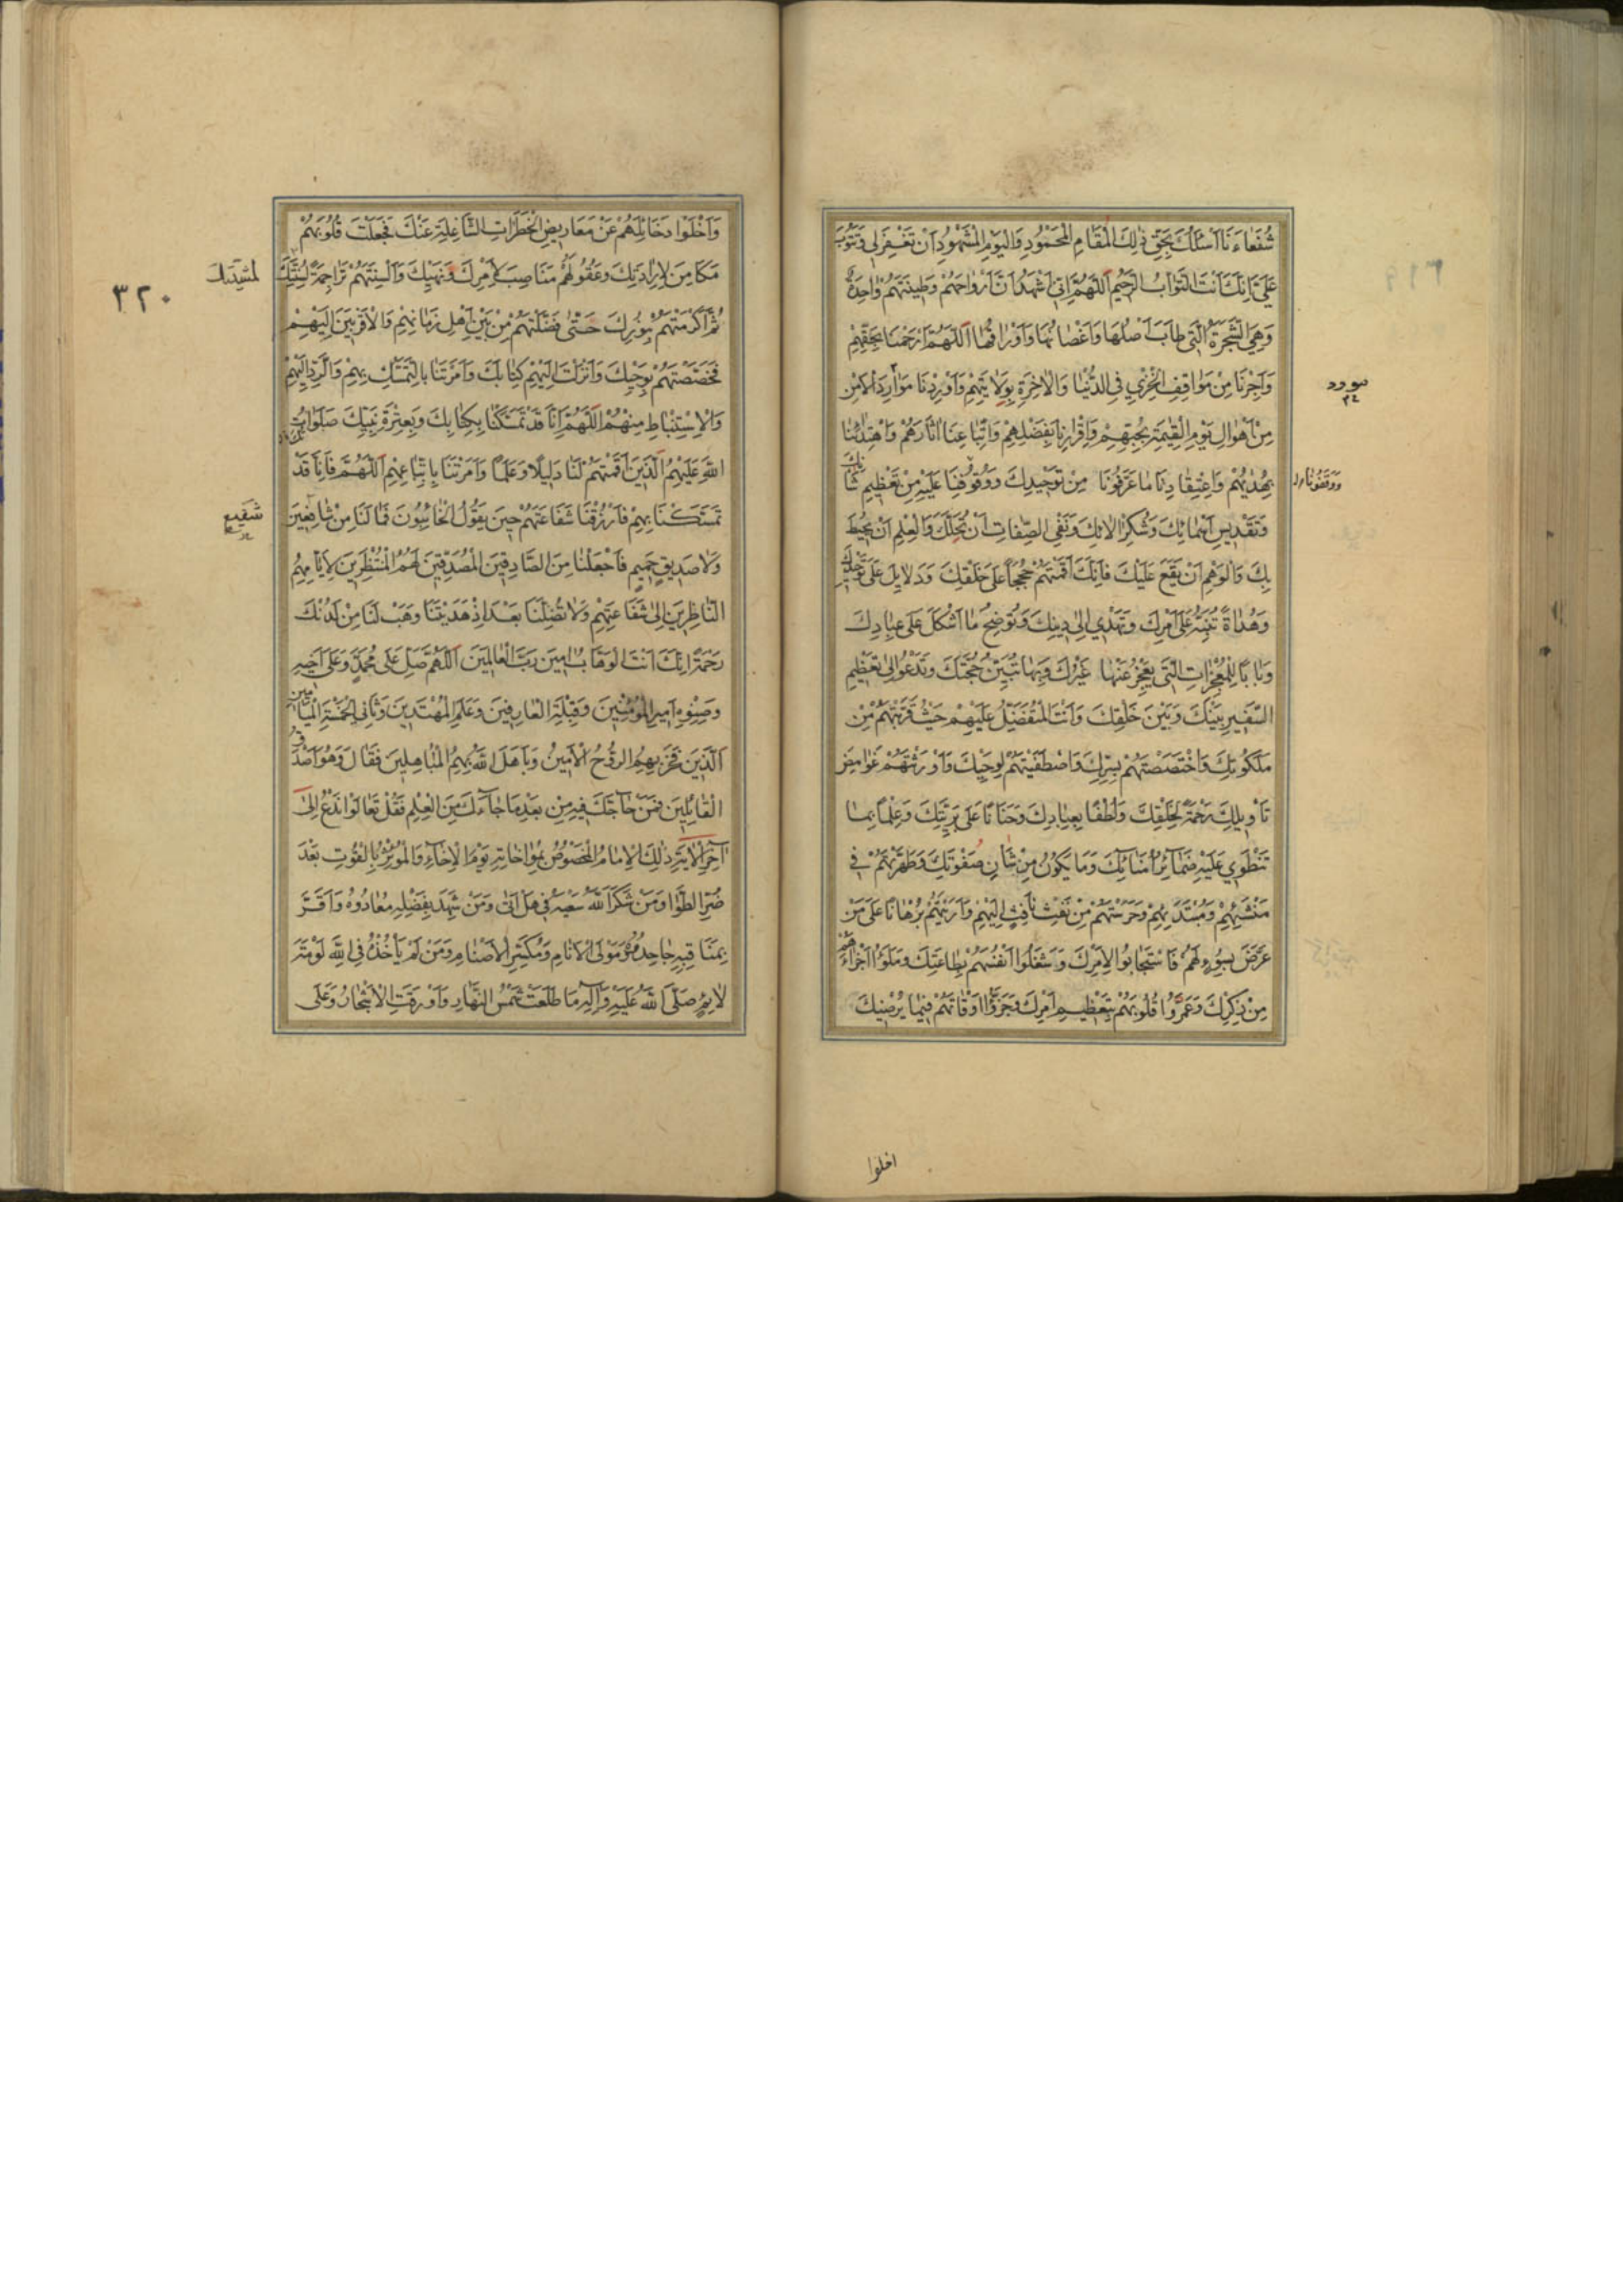 شُفَعَاءَنَا اَسْئَلُكَ بِحَقِّ ذٰلِكَ الْمَقَامِ الْمَحْمُودِ وَالْيَوْمِ الْمَشْهُودِ اَنْ تَغْفِرَ لِي وَتَتُوبَ
عَلَيَّ اِنَّكَ اَنْتَ التَّوَّابُ الرَّحِيمُ اَللّٰهُمَّ اِنِّي اَشْهَدُ اَنَّ اَرْوَاحَهُمْ وَطِينَتَهُمْ وَاحِدَةٌ
وَهِيَ الشَّجَرَةُ الَّتِي طَابَ اَصْلُهَا وَاَغْصَانُهَا وَاَوْرَاقُهَا اَللّٰهُمَّ ارْحَمْنَا بِحَقِّهِمْ
وَاَجِرْنَا مِنْ مَوَاقِفِ الْخِزْيِ فِي الدُّنْيَا وَالْاٰخِرَةِ بِوِلَايَتِهِمْ وَاَوْرِدْنَا مَوَارِدَ الْاَمْنِ
مِنْ اَهْوَالِ يَوْمِ الْقِيٰمَةِ بِحُبِّهِمْ وَاِقْرَارِنَا بِفَضْلِهِمْ وَاتِّبَاعِنَا اٰثَارَهُمْ وَاهْتِدَائِنَا
بِهُدٰيهُمْ وَاعْتِقَادِنَا مَا عَرَّفُونَا مِنْ تَوْحِيدِكَ وَوُقُوفِنَا عَلَيْهِ مِنْ تَعْظِيمِ شَأْنِكَ
وَتَقْدِيسِ اَسْمَائِكَ وَشُكْرِ اٰلَائِكَ وَنَفْيِ الصِّفَاتِ اَنْ تَحُلَّكَ وَالْعِلْمِ اَنْ يُحِيطَ
بِكَ وَالْوَهْمِ اَنْ يَقَعَ عَلَيْكَ فَاِنَّكَ اَقَمْتَهُمْ حُجَجًا عَلَى خَلْقِكَ وَدَلَايِلَ عَلَى تَوْحِيدِكَ
وَهُدَاةً تُنَبِّهُ عَلَى اَمْرِكَ وَتَهْدِي اِلَى دِينِكَ وَتُوضِحُ مَا اَشْكَلَ عَلَى عِبَادِكَ
وَبَابًا لِلْمُعْجِزَاتِ الَّتِي يَعْجِزُ عَنْهَا غَيْرُكَ وَبِهَا تُبَيِّنُ حُجَّتَكَ وَتَدْعُو اِلَى تَعْظِيمِ
السَّفِيرِ بَيْنَكَ وَبَيْنَ خَلْقِكَ وَاَنْتَ الْمُتَفَضِّلُ عَلَيْهِمْ حَيْثُ قَرَّبْتَهُمْ مِنْ
مَلَكُوتِكَ وَاخْتَصَصْتَهُمْ بِسِرِّكَ وَاصْطَفَيْتَهُمْ لِوَحْيِكَ وَاَوْرَثْتَهُمْ غَوَامِضَ
تَأْوِيلِكَ رَحْمَةً لِخَلْقِكَ وَلُطْفًا بِعِبَادِكَ وَحَنَانًا عَلَى بَرِيَّتِكَ وَعِلْمًا بِمَا
تَنْطَوِي عَلَيْهِ ضَمَآئِرُ اُمَنَائِكَ وَمَا يَكُونُ مِنْ شَأْنِ صَفْوَتِكَ وَطَهَّرْتَهُمْ فِي
مَنْشَئِهِمْ وَمُبْتَدَئِهِمْ وَحَرَسْتَهُمْ مِنْ نَفْثِ نَافِثٍ اِلَيْهِمْ وَاَرَيْتَهُمْ بُرْهَانًا عَلَى مَنْ
عَرَضَ بِسُوءٍ لَهُمْ فَاسْتَجَابُوا لِاَمْرِكَ وَشَغَلُوا اَنْفُسَهُمْ بِطَاعَتِكَ وَمَلَؤُا اَجْزَاءَهُمْ
مِنْ ذِكْرِكَ وَعَمَرُوا قُلُوبَهُمْ بِتَعْظِيمِ اَمْرِكَ وَجَزَّؤُا اَوْقَاتَهُمْ فِيمَا يُرْضِيكَ
ووقفونا
اخلوا
وَاَخْلَوْا دَخَائِلَهُمْ عَنْ مَعَارِيضِ الْخَطَرَاتِ الشَّاغِلَةِ عَنْكَ فَجَعَلْتَ قُلُوبَهُمْ
مَكَامِنَ لِاِرَادَتِكَ وَعُقُولَهُمْ مَنَاصِبَ لِاَمْرِكَ وَنَهْيِكَ وَاَلْسِنَتَهُمْ تَرَاجِمَةً لِسُنَّتِكَ
ثُمَّ اَكْرَمْتَهُمْ بِنُورِكَ حَتّٰى فَضَّلْتَهُمْ مِنْ بَيْنِ اَهْلِ زَمَانِهِمْ وَالْاَقْرَبِينَ اِلَيْهِمْ
فَخَصَصْتَهُمْ بِوَحْيِكَ وَاَنْزَلْتَ اِلَيْهِمْ كِتَابَكَ وَاَمَرْتَنَا بِالتَّمَسُّكِ بِهِمْ وَالرَّدِّ اِلَيْهِمْ
وَالْاِسْتِنْبَاطِ مِنْهُمْ اَللّٰهُمَّ اِنَّا قَدْ تَمَسَّكْنَا بِكِتَابِكَ وَبِعِتْرَةِ نَبِيِّكَ صَلَوَاتُ
اللّٰهِ عَلَيْهِمُ الَّذِينَ اَقَمْتَهُمْ لَنَا دَلِيلًا وَعَلَمًا وَاَمَرْتَنَا بِاتِّبَاعِهِمْ اَللّٰهُمَّ فَاِنَّا قَدْ
تَمَسَّكْنَا بِهِمْ فَارْزُقْنَا شَفَاعَتَهُمْ حِينَ يَقُولُ الْخَائِبُونَ فَمَا لَنَا مِنْ شَافِعِينَ
وَلَا صَدِيقٍ حَمِيمٍ فَاجْعَلْنَا مِنَ الصَّادِقِينَ الْمُصَدِّقِينَ لَهُمُ الْمُنْتَظِرِينَ لِاَيَّامِهِمُ
النَّاظِرِينَ اِلَى شَفَاعَتِهِمْ وَلَا تُضِلَّنَا بَعْدَ اِذْ هَدَيْتَنَا وَهَبْ لَنَا مِنْ لَدُنْكَ
رَحْمَةً اِنَّكَ اَنْتَ الْوَهَّابُ اٰمِينَ رَبَّ الْعَالَمِينَ اَللّٰهُمَّ صَلِّ عَلَى مُحَمَّدٍ وَعَلَى اَخِيهِ
وَصِنْوِهِ اَمِيرِ الْمُؤْمِنِينَ وَقِبْلَةِ الْعَارِفِينَ وَعَلَمِ الْمُهْتَدِينَ وَثَانِي الْخَمْسَةِ الْمَيَامِينِ
اَلَّذِينَ فَخَرَ بِهِمُ الرُّوحُ الْاَمِينُ وَبَاهَلَ اللّٰهُ بِهِمُ الْمُبَاهِلِينَ فَقَالَ وَهُوَ اَصْدَقُ
الْقَائِلِينَ فَمَنْ حَآجَّكَ فِيهِ مِنْ بَعْدِ مَا جَآءَكَ مِنَ الْعِلْمِ فَقُلْ تَعَالَوْا نَدْعُ اِلَى
اٰخِرِ الْاٰيَةِ ذٰلِكَ الْاِمَامُ الْمَخْصُوصُ بِمُوَاخَاتِهِ يَوْمَ الْاِخَآءِ وَالْمُؤْثِرُ بِالْقُوتِ بَعْدَ
ضُرِّ الطَّوَا وَمَنْ شَكَرَ اللّٰهُ سَعْيَهُ فِي هَلْ اَتٰى وَمَنْ شَهِدَ بِفَضْلِهِ مُعَادُوهُ وَاَقَرَّ
بِمَنَاقِبِهِ جَاحِدُوهُ مَوْلَى الْاَنَامِ وَمُكَسِّرِ الْاَصْنَامِ وَمَنْ لَمْ يَأْخُذْهُ فِي اللّٰهِ لَوْمَةُ
لَائِمٍ صَلَّى اللّٰهُ عَلَيْهِ وَاٰلِهِ مَا طَلَعَتْ شَمْسُ النَّهَارِ وَاَوْرَقَتِ الْاَشْجَارُ وَعَلَى
شفيع
٣٢٠